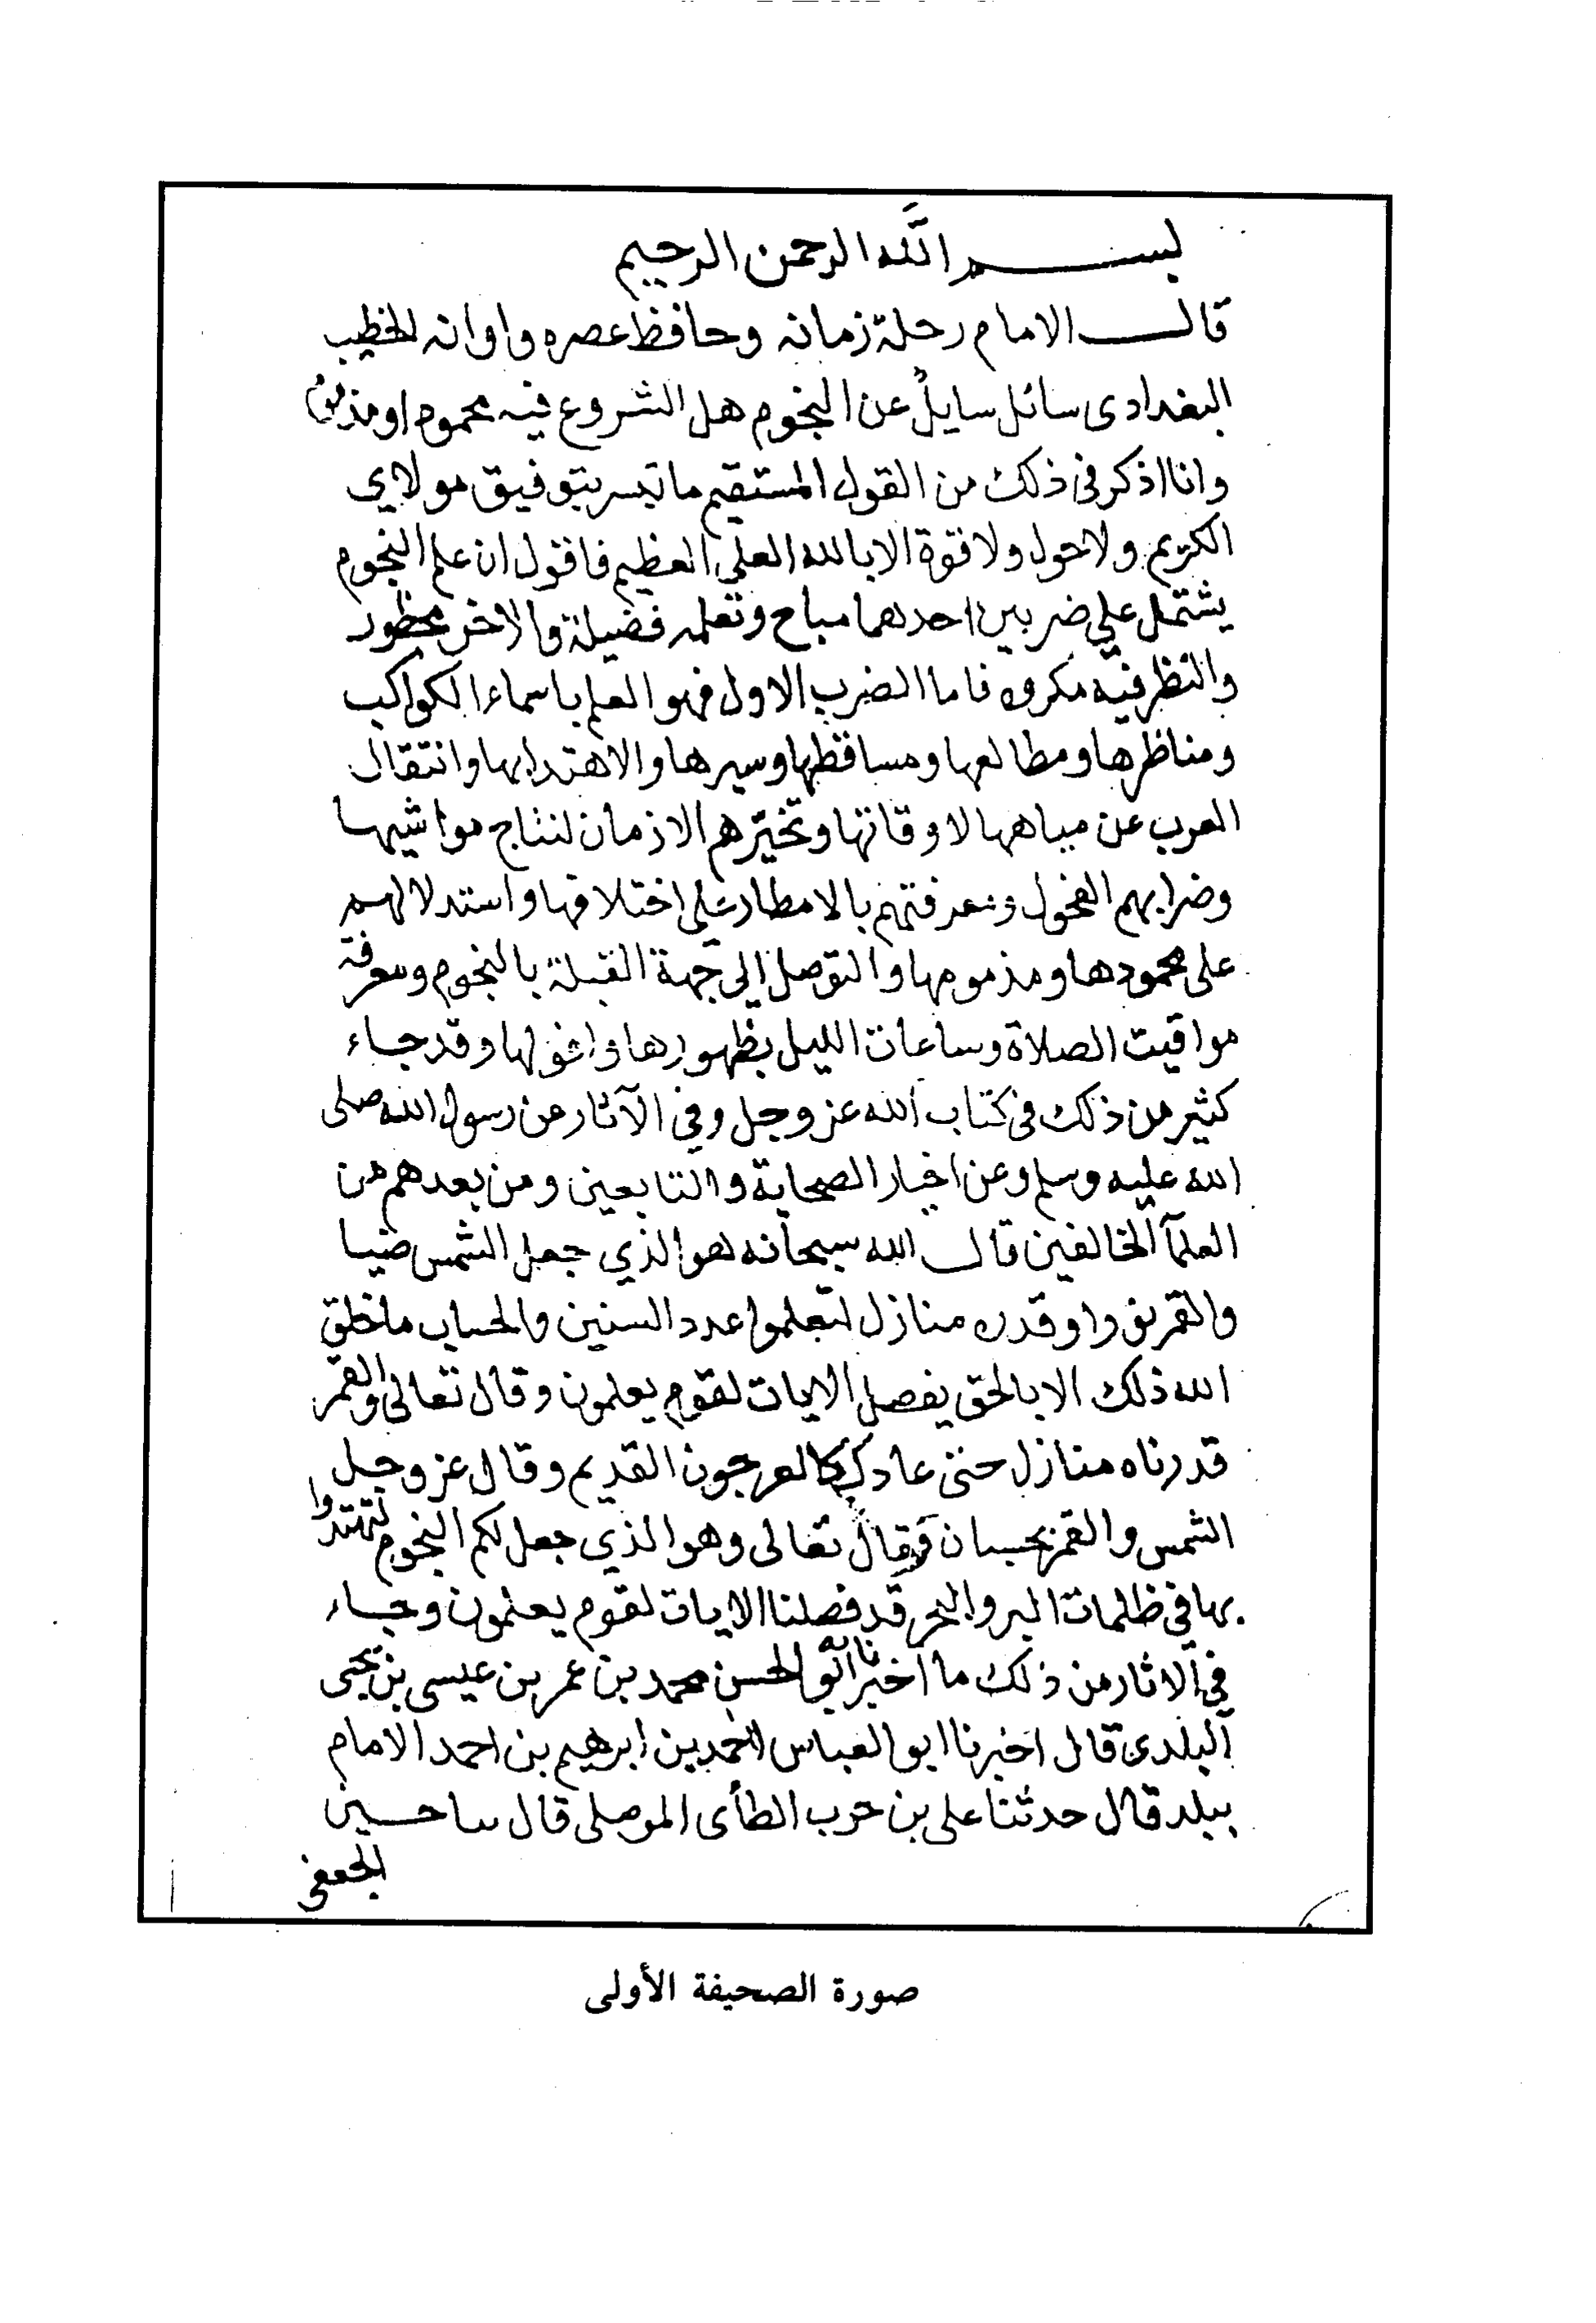 بسم الله الرحمن الرحيم
قال الامام رحلة زمانه وحافظ عصره واوانه الخطيب
البغدادى سائل سايلٌ عن النجوم هل الشروع فيه محموم او مذموم
وانا اذكر في ذلك من القول المستقيم ما تيسر بتوفيق مولاي
الكريم ولا حول ولا قوة الا بالله العلي العظيم فاقول ان علم النجوم
يشتمل علي ضربين احدهما مباح وتعلمه فضيلة والاخر محظور
والنظر فيه مكروه فاما الضرب الاول فهو العلم باسماء الكواكب
ومناظرها ومطالعها ومساقطها وسيرها والاهتدا بها وانتقال
العرب عن مياهها لاوقاتها وتخيّرهم الازمان لنتاج مواشيها
وضرابهم الفحول ومعرفتهم بالامطار علي اختلافها واستدلالهم
على محمودها ومذمومها والتوصل الى جهة القبلة بالنجوم ومعرفة
مواقيت الصلاة وساعات الليل بظهورها وافولها وقد جاء
كثير من ذلك في كتاب الله عز وجل وفي الآثار عن رسول الله صلى
الله عليه وسلم وعن اخيار الصحابة والتابعين ومن بعدهم من
العلمآ الخالفين قال الله سبحانه هو الذي جعل الشمس ضيا
والقمر نورا وقدره منازل لتعلموا عدد السنين والحساب ما خلق
الله ذلك الا بالحق يفصل الايات لقوم يعلمون وقال تعالى والقمر
قدرناه منازل حتى عاد كالعرجون القديم وقال عز وجل
الشمس والقمر بحسبان وقال تعالى وهو الذي جعل لكم النجوم لتهتدوا
بها في ظلمات البر والبحر قد فصلنا الايات لقوم يعلمون وجاء
في الاثار من ذلك ما اخبرنا ابو الحسن محمد بن عمر بن عيسى بن يحيى
البلدى قال اخبرنا ابو العباس احمد بن ابرهيم بن احمد الامام
ببلد قال حدثنا على بن حرب الطأى الموصلى قال سا حسين
الجعفي
صورة الصحيفة الأولى